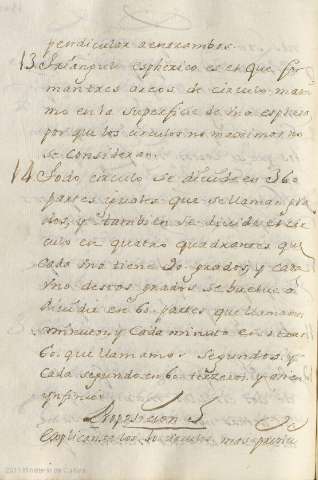 pendicular a entrambos.
13. Triangulo espherico es el que for
man tres arcos de circulo maxi
mo en la superficie de una esphera
por que los circulos no maximos no
se consideran.
14. Todo circulo se divide en 360
partes iguales que se llaman gra
dos, y tambien se divide el cir
culo en quatro quadrantes que
cada uno tiene 90 grados, y cada
uno destos grados se buelve a
dividir en 60 partes que llamamos
minutos, y cada minuto en otros
60, que llamamos segundos, y
cada segundo en 60 terceros, y en
ynfinito
Proposicion
Explicanse los circulos mas
2011 Ministerio de Cultura